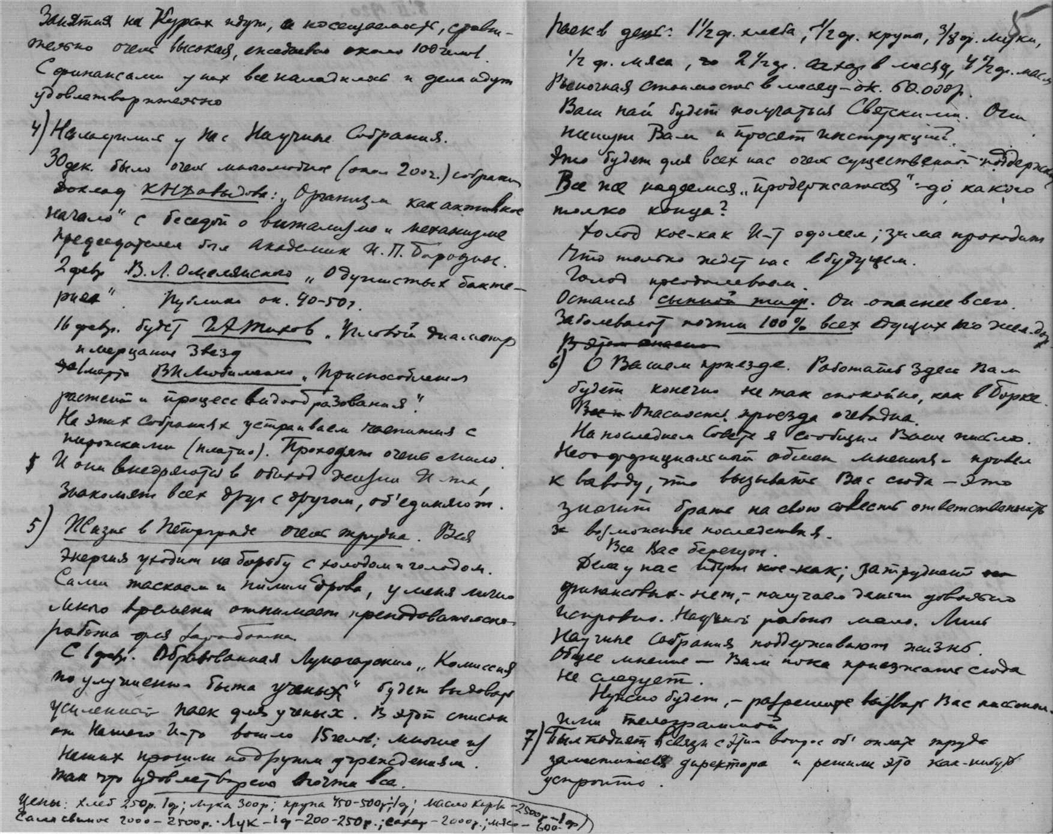 Занятия на Курсах идут, а посещаемость, сравни-
тельно очень высокая, ежедневно около 100 чел.
С финансами у нас все наладилось и дела идут
удовлетворительно
4) Наладились у нас Научные Собрания.
30 дек. было очень многолюдное (около 200 ч.) собрание
Доклад К.Н. Давыдова: "Организм как активное
начало" с беседой о витализме и механизме
Председателем был академик И.П. Бородин.
2 февр В.Л. Омелянского "О душистых бакте-
риях" Публики ок. 40-50 ч.
16 февр. будет Г.А. Тихов. Угловой диаметр
и мерцание звезд
1 марта В.Н. Любименко "Приспособления
растений и процесс видообразования".
На этих собраниях устраиваем чаепития с
пирожками (платно). Проходят очень мило.
И они внедряются в обиход жизни И-та,
знакомят всех друг с другом, об'единяют.
5) Жизнь в Петрограде очень трудна. Вся
энергия уходит на борьбу с холодом и голодом.
Сами таскаем и пилим дрова, у меня лично
много времени отнимает преподавательск.
работа для заработка
С 1 февр. Образованная Луначарским "Комиссия
по улучшению быта ученых" будет выдавать
усиленный паек для ученых. В этот список
от нашего И-та вошло 15 челов; многие из
наших прошли по другим учреждениям.
Так что удовлетворено почти все.
Цены: хлеб 250р. 1ф; мука 300р; крупа 450-500р; 1ф; масло коров - 2500р - 1ф)
Сало свиное 2000-2500р. Лук - 1ф - 200-250р.; сахар - 2000р.; мясо - 600-
5
Паек в день: 1½ ф. хлеба, ½ ф. крупы, 3/8 ф. муки,
½ ф. мяса, 2½ ф. сахар в месяц, 4½ ф. масла
Рыночная стоимость в месяц - ок. 60.000р.
Ваш пай будет получаться Святскими. Они
пишут Вам и просят инструкций.
Это будет для всех нас очень существенной поддержкой
Все же надеемся "продержаться" - до какого
только конца?
Холод кое-как И-т одолел; зима проходит
Что только ждет нас в будущем.
Голод преодолеваем.
Остался сыпной тиф. Он опаснее всего.
Заболевают почти 100% всех едущих по жел.дор.
6) О Вашем приезде. Работать здесь Вам
будет конечно не так спокойно, как в Борке.
Опасность проезда очевидна.
На последнем Совете я сообщил Ваше письмо.
Неофициальный обмен мнения - привел
к выводу, что вызывать Вас сюда - это
значит брать на свою совесть ответственность
за возможные последствия.
Все Вас берегут.
Дела у нас идут кое-как; затруднений
финансовых - нет, - получаем деньги довольно
исправно. Научной работы мало. Лишь
Научные Собрания поддерживают жизнь.
Общее мнение - Вам пока приезжать сюда
не следует.
Нужно будет, - разрешите вызвать Вас письмом
или телеграммой
7) Был поднят в связи с этим вопрос об' оплате труда
заместителя директора и решили это как-нибудь
устроить.